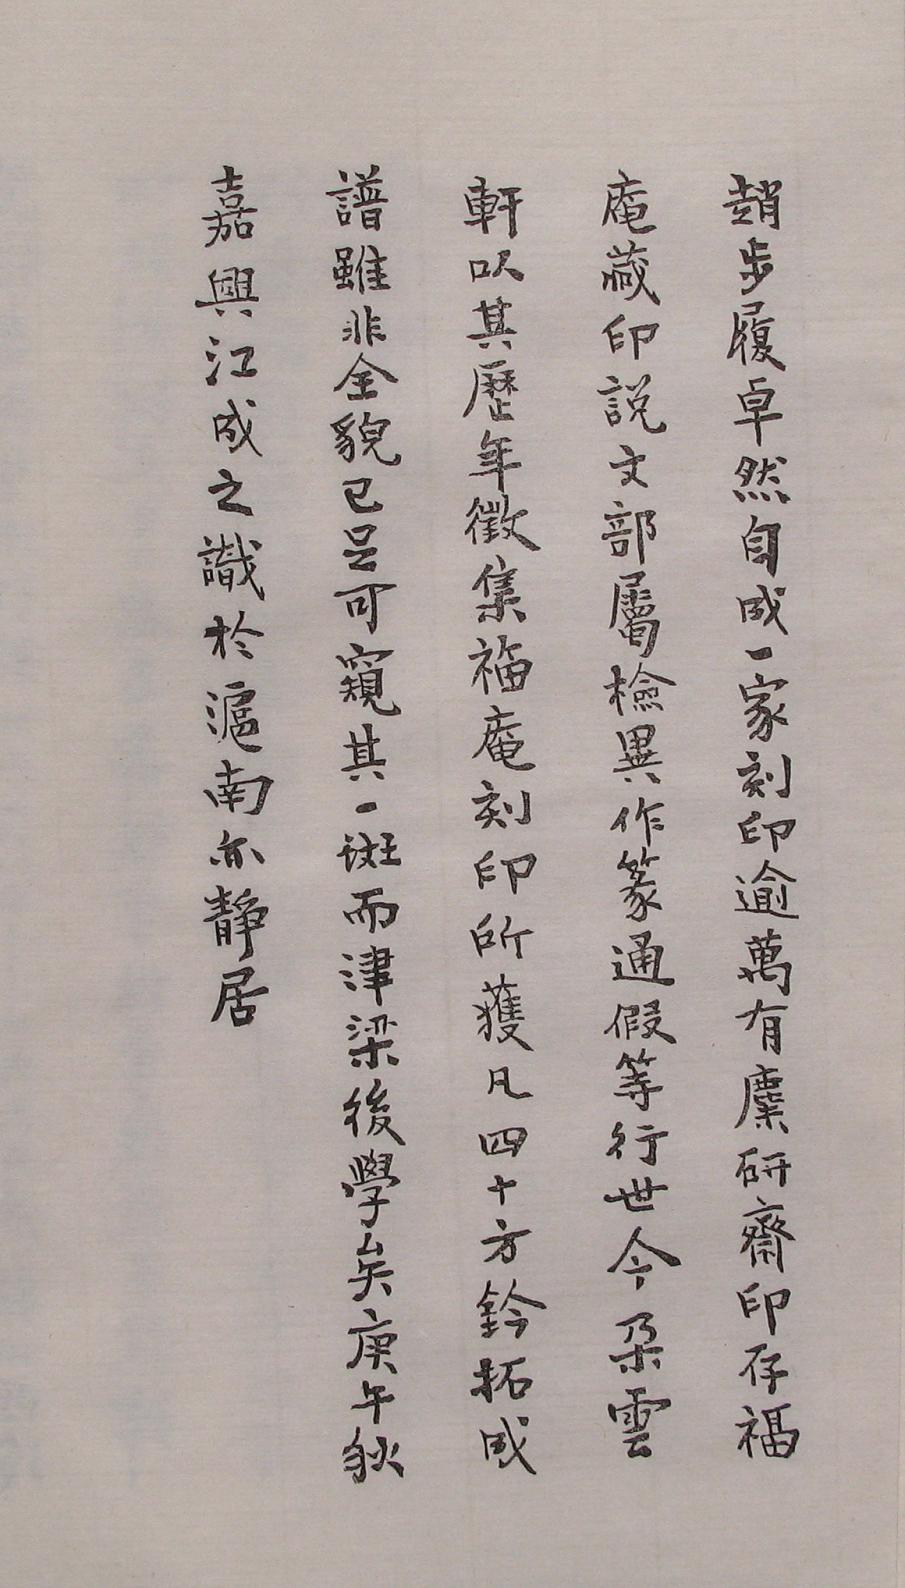 趙步履卓然自成一家刻印逾萬有麋研齋印存福
庵藏印説文部屬檢異作篆通假等行世今朶雲
軒以其歷年徵集福庵刻印所獲凡四十方鈐拓成
譜雖非全貌已足可窺其一斑而津梁後學矣庚午秋
嘉興江成之識於滬南亦靜居